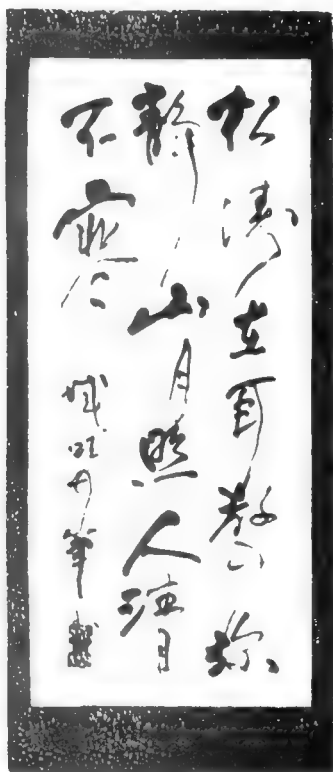 松涛在耳聲弥
静山月照人清
不寒 筆